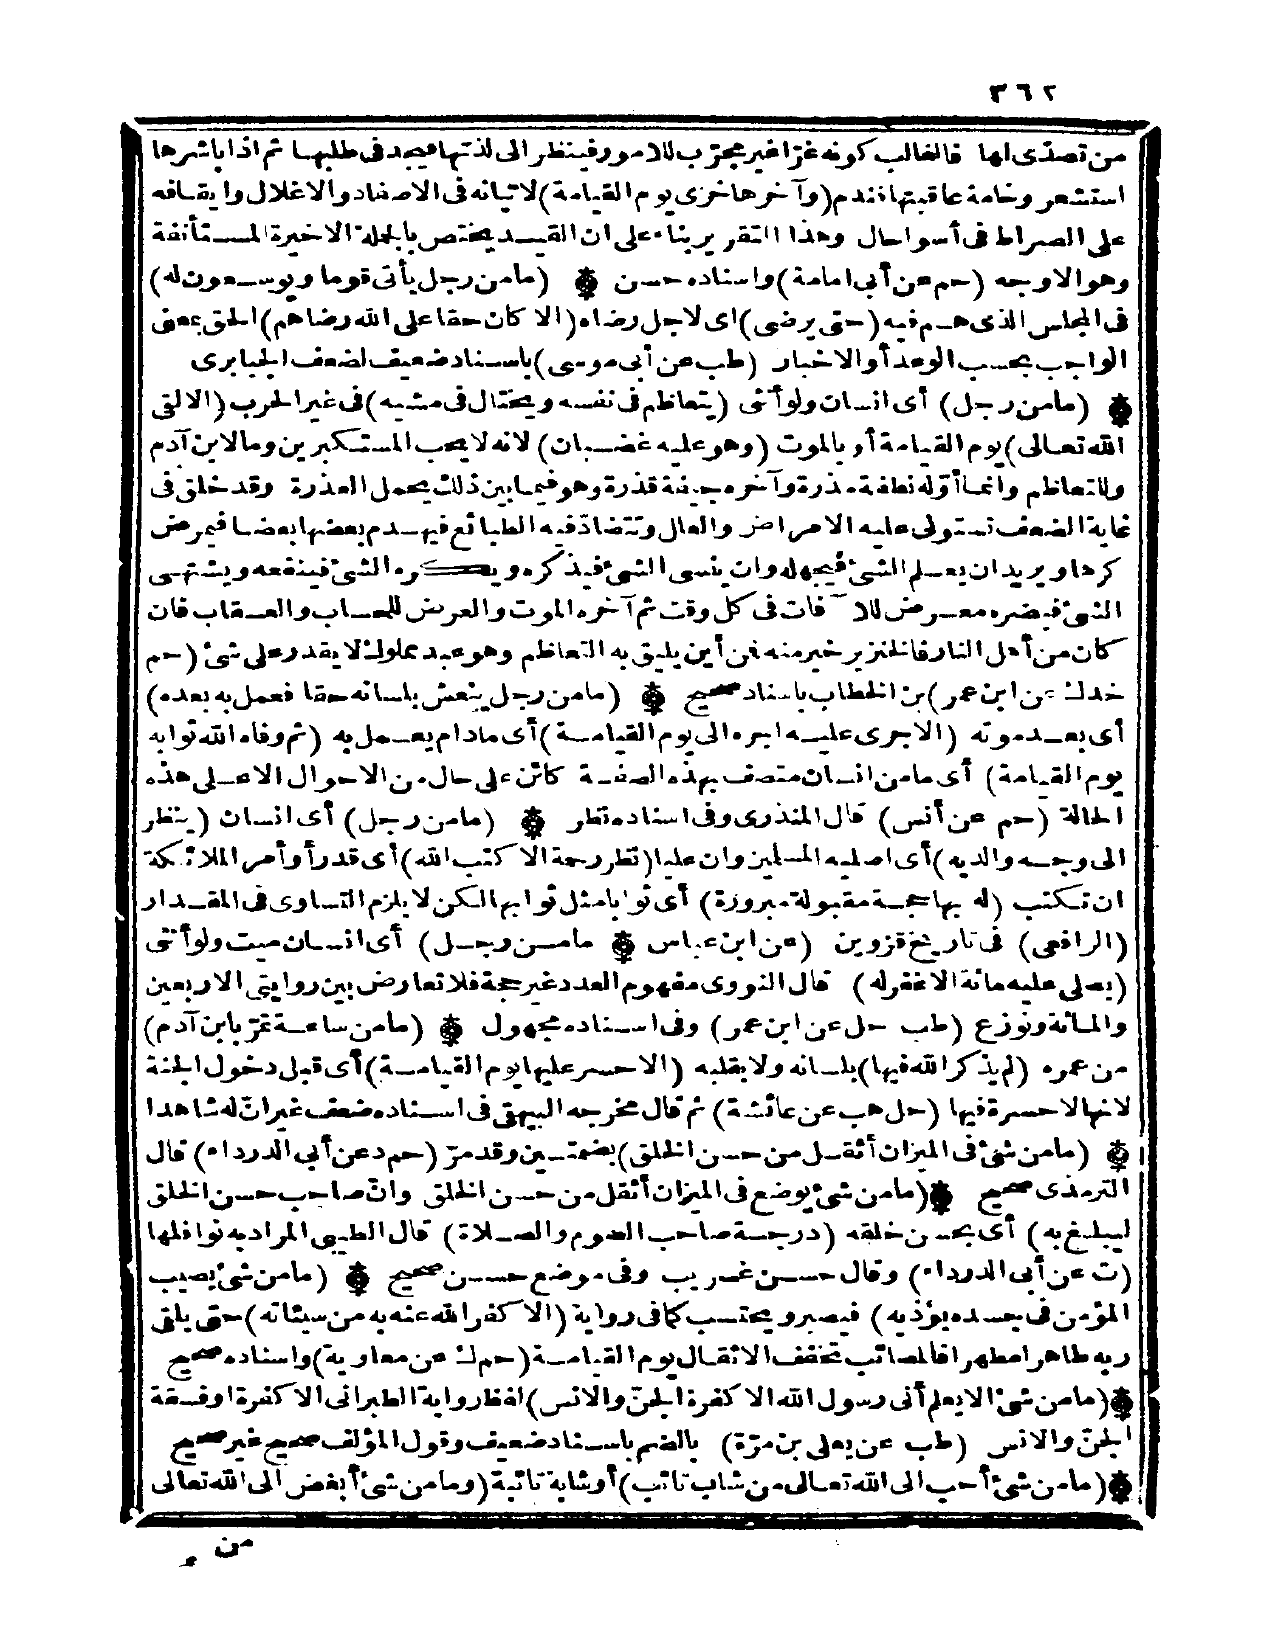 ٣٦٢
من تصدّى لها فالغالب كونه غرّا غير مجرّب للامور فينظر الى لذتها فيجد فى طلبها ثم اذا باشرها
استشعر وخامة عاقبتها فندم (وآخرها خزى يوم القيامة) لاتيانه فى الاصفاد والاغلال وايقافه
على الصراط فى أسوا حال وهذا التقرير بناء على ان القيد يختص بالجملة الاخيرة المستأنفة
وهو الاوجه (حم عن أبى امامة) واسناده حسن (ما من رجل يأتى قوما ويوسعون له)
فى المجلس الذى هم فيه (حتى يرضى) اى لاجل رضاه (الا كان حقا على الله رضاهم) الحق بمعنى
الواجب بحسب الوعد أو الاخبار (طب عن أبى موسى) باسناد ضعيف لضعف الخبايرى
(ما من رجل) أى انسان ولو أنثى (يتعاظم فى نفسه ويختال فى مشيه) فى غير الحرب (الا لقى
الله تعالى) يوم القيامة أو بالموت (وهو عليه غضبان) لانه لا يحب المستكبرين وما لابن آدم
وللتعاظم وانما أوّله نطفة مذرة وآخره جيفة قذرة وهو فيما بين ذلك يحمل العذرة وقد خلق فى
غاية الضعف تستولى عليه الامراض والعلل وتتضادّ فيه الطبائع فيهدم بعضها بعضا فيمرض
كرها ويريد ان يعلم الشئ فيجهله وان ينسى الشئ فيذكره ويكره الشئ فينفعه ويشتهى
الشئ فيضره معرض للآفات فى كل وقت ثم آخره الموت والعرض للحساب والعقاب فان
كان من أهل النار فالخنزير خير منه فمن أين يليق به التعاظم وهو عبد مملوك لا يقدر على شئ (حم
خد ك عن ابن عمر) بن الخطاب باسناد صحيح (ما من رجل ينعش بلسانه حقا فعمل به بعده)
أى بعد موته (الا جرى عليه اجره الى يوم القيامة) أى مادام يعمل به (ثم وفاه الله ثوابه
يوم القيامة) أى ما من انسان متصف بهذه الصفة كائن على حال من الاحوال الا على هذه
الحالة (حم عن أنس) قال المنذرى وفى اسناده نظر (ما من رجل) أى انسان (ينظر
الى وجه والديه) أى اصليه المسلمين وان عليا (نظر رحمة الا كتب الله) أى قدر أو أمر الملائكة
ان تكتب (له بها حجة مقبولة مبرورة) أى ثوابا مثل ثوابها لكن لا يلزم التساوى فى المقدار
(الرافعى) فى تاريخ قزوين (عن ابن عباس ما من رجل) أى انسان ميت ولو أنثى
(يصلى عليه مائة الا غفر له) قال النووى مفهوم العدد غير حجة فلا تعارض بين روايتى الاربعين
والمائة ونوزع (طب حل عن ابن عمر) وفى اسناده مجهول (ما من ساعة تمرّ بابن آدم)
من عمره (لم يذكر الله فيها) بلسانه ولا بقلبه (الا حسر عليها يوم القيامة) أى قبل دخول الجنة
لانها لا حسرة فيها (حل هب عن عائشة) ثم قال مخرجه البيهقى فى اسناده ضعف غير انّ له شاهدا
(ما من شئ فى الميزان أثقل من حسن الخلق) بضمتين وقد مرّ (حم د عن أبى الدرداء) قال
الترمذى صحيح (ما من شئ يوضع فى الميزان أثقل من حسن الخلق وانّ صاحب حسن الخلق
ليبلغ به) أى بحسن خلقه (درجة صاحب الصوم والصلاة) قال الطيبى المراد به نوافلها
(ت عن أبى الدرداء) وقال حسن غريب وفى موضع حسن صحيح (ما من شئ يصيب
المؤمن فى جسده يؤذيه) فيصبر ويحتسب كما فى رواية (الا كفر الله عنه به من سيئاته) حتى يلقى
ربه طاهرا مطهرا فالمصائب تخفف الاثقال يوم القيامة (حم ك عن معاوية) واسناده صحيح
(ما من شئ الا يعلم أنى رسول الله الا كفرة الجنّ والانس) لفظ رواية الطبرانى الا كفرة او فسقة
الجنّ والانس (طب عن يعلى بن مرّة) بالضم باسناد ضعيف وقول المؤلف صحيح غير صحيح
(ما من شئ أحب الى الله تعالى من شاب تائب) أو شابة تائبة (وما من شئ أبغض الى الله تعالى
من